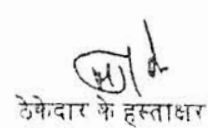 ठेकेदार के हस्ताक्षर